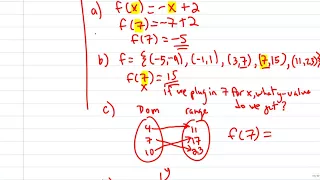 a) f(x) = -x + 2
f(7) = -7 + 2
f(7) = -5
b) f = {(-5,-9), (-1,1), (3,7), (7,15), (11,23)}
f(7) = 15
x
if we plug in 7 for x, what y-value
do we get?
c) Dom range
4 11
7 17
10 23
f(7) =
y